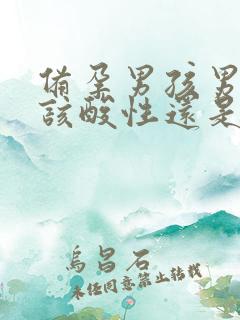 備孕男孩男
該酸性還是
烏昌石
未经同意禁止转载